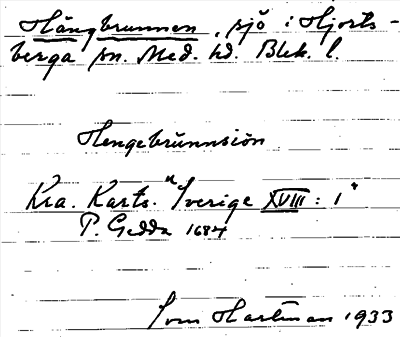 Hängbrunnen, sjö i Hjorts-
berga sn. Med. hd. Blek. l.
Hengebrünnsiön
Kra. Karts. "Sverige XVIII : 1"
P. Gedda 1684
Sven Hartman 1933